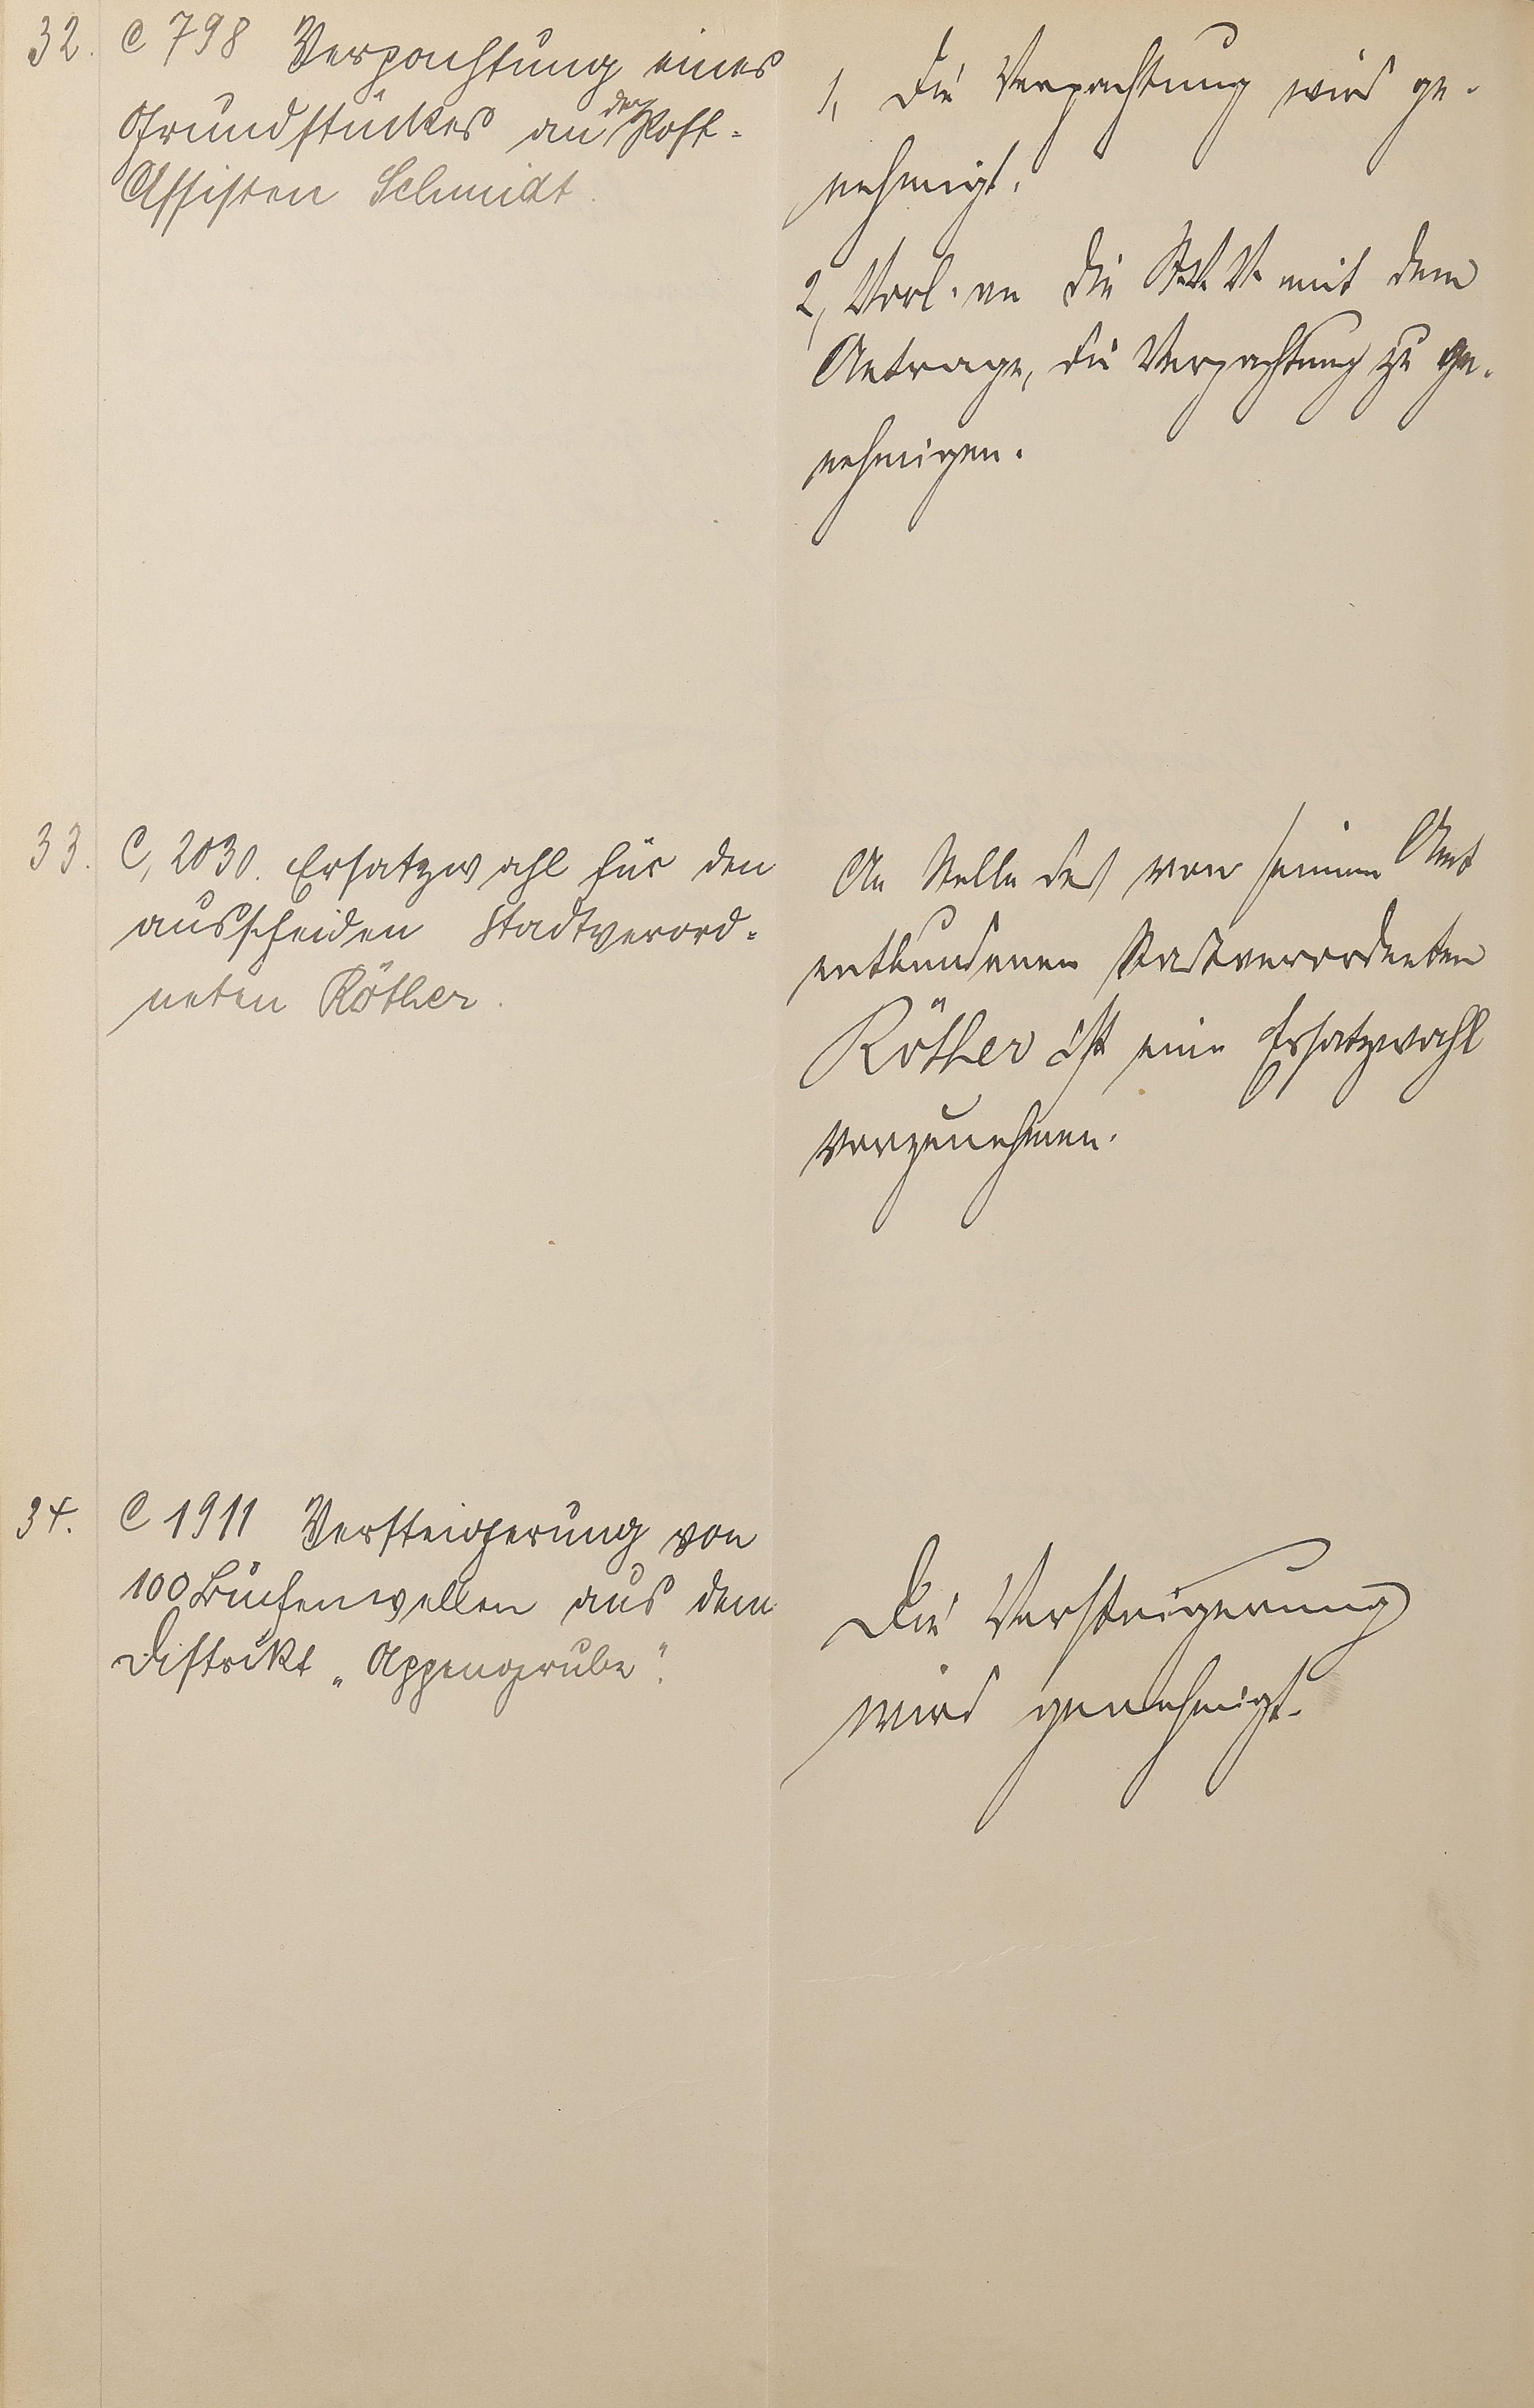 32. C 798 Verpachtung eines
Grundstückes an den Post-
Assisten Schmidt.
1, Die Verpachtung wird ge-
nehmigt.
2, Vorl. an die St.V.V. mit dem
Antrage, die Verpachtung zu ge-
nehmigen.
33. C, 2030. Ersatzwahl für den
ausscheiden Stadtverord-
neten Röther.
An Stelle des von seinem Amt
entbundenen Stadtverordneten
Röther ist eine Ersatzwahl
vorzunehmen.
34. C 1911 Versteigerung von
100 Buchenwellen aus dem
Distrikt „Appengrube".
Die Versteigerung
wird genehmigt.